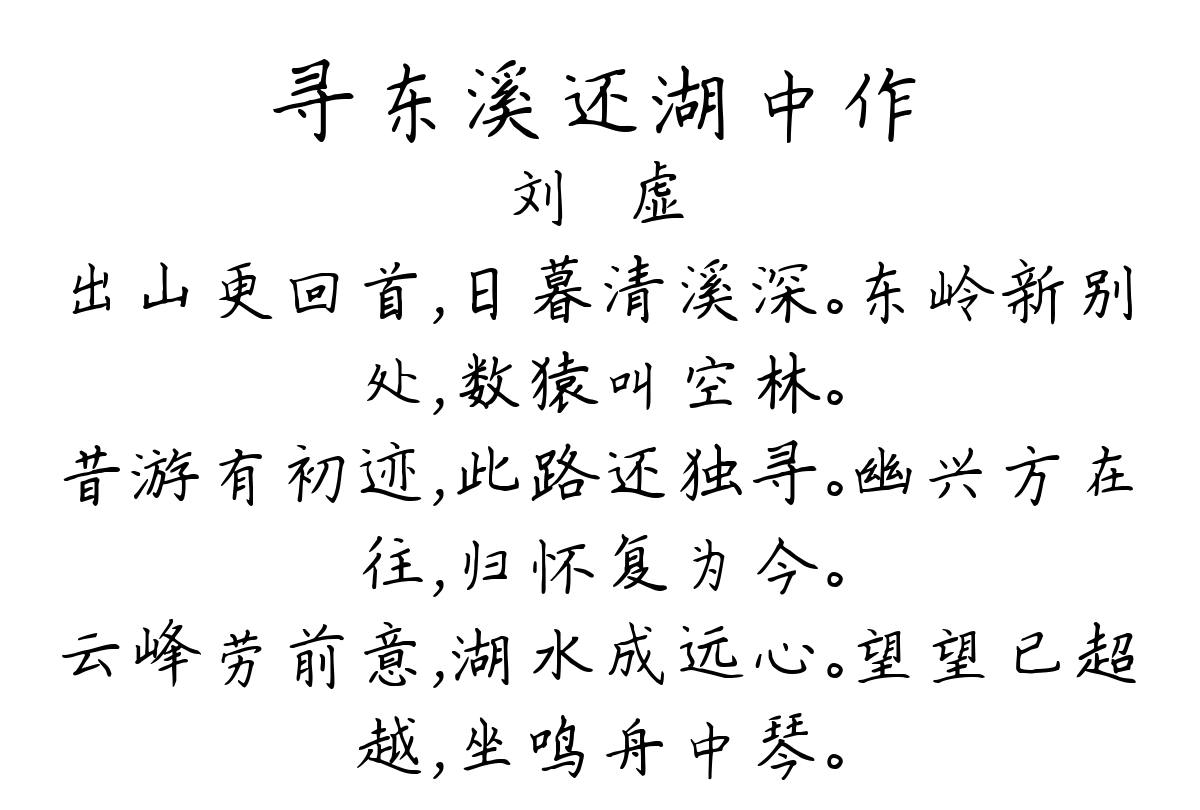 寻东溪还湖中作
刘 虚
出山更回首,日暮清溪深。东岭新别
处,数猿叫空林。
昔游有初迹,此路还独寻。幽兴方在
往,归怀复为今。
云峰劳前意,湖水成远心。望望已超
越,坐鸣舟中琴。